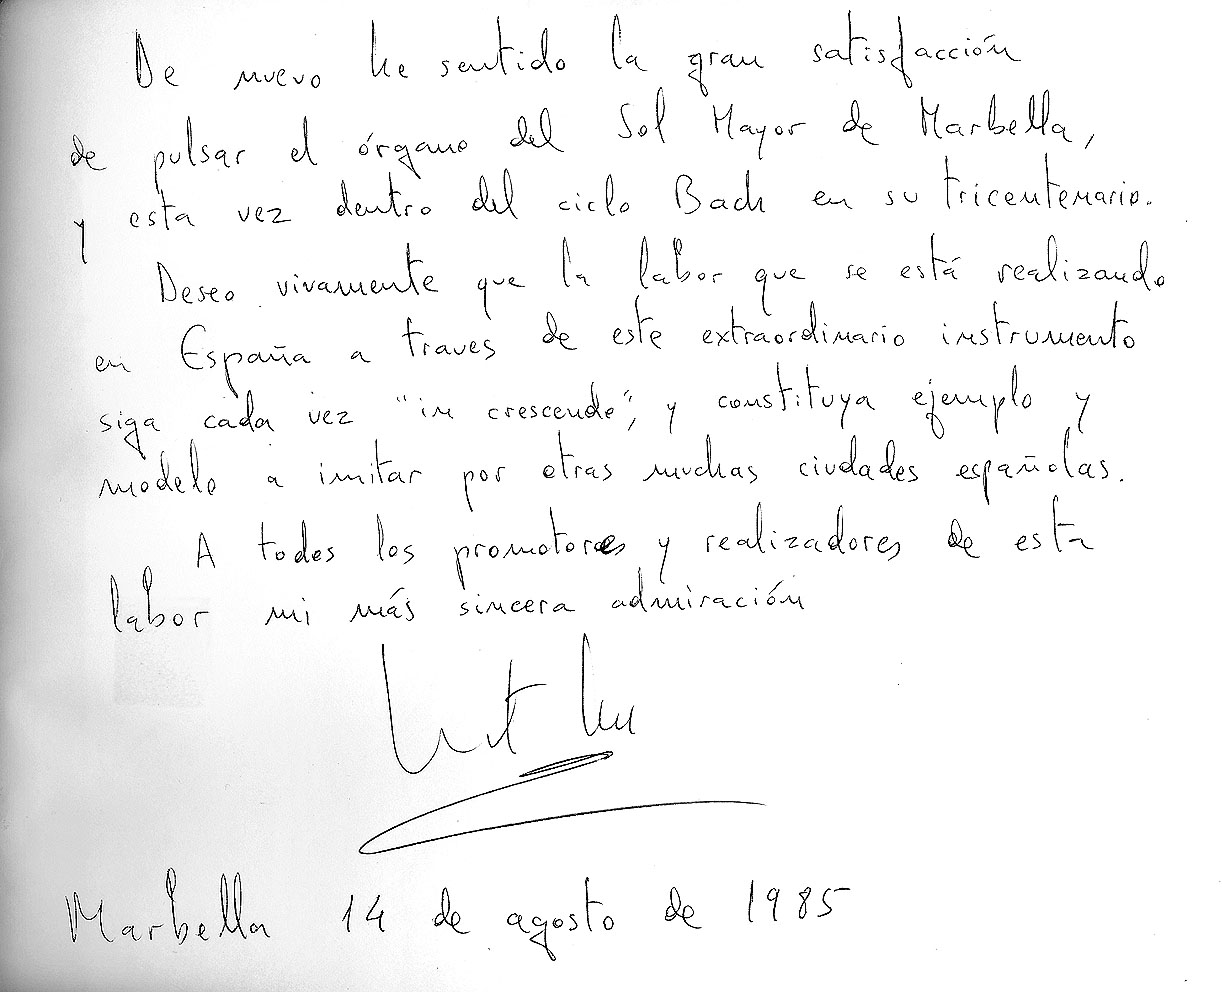 De nuevo he sentido la gran satisfacción
de pulsar el órgano del Sol Mayor de Marbella,
y esta vez dentro del ciclo Bach en su tricentenario.
Deseo vivamente que la labor que se está realizando
en España a traves de este extraordinario instrumento
siga cada vez "in crescende", y constituya ejemplo y
modelo a imitar por otras muchas ciudades españolas.
A todos los promotores y realizadores de esta
labor mi más sincera admiración
Marbella 14 de agosto de 1985